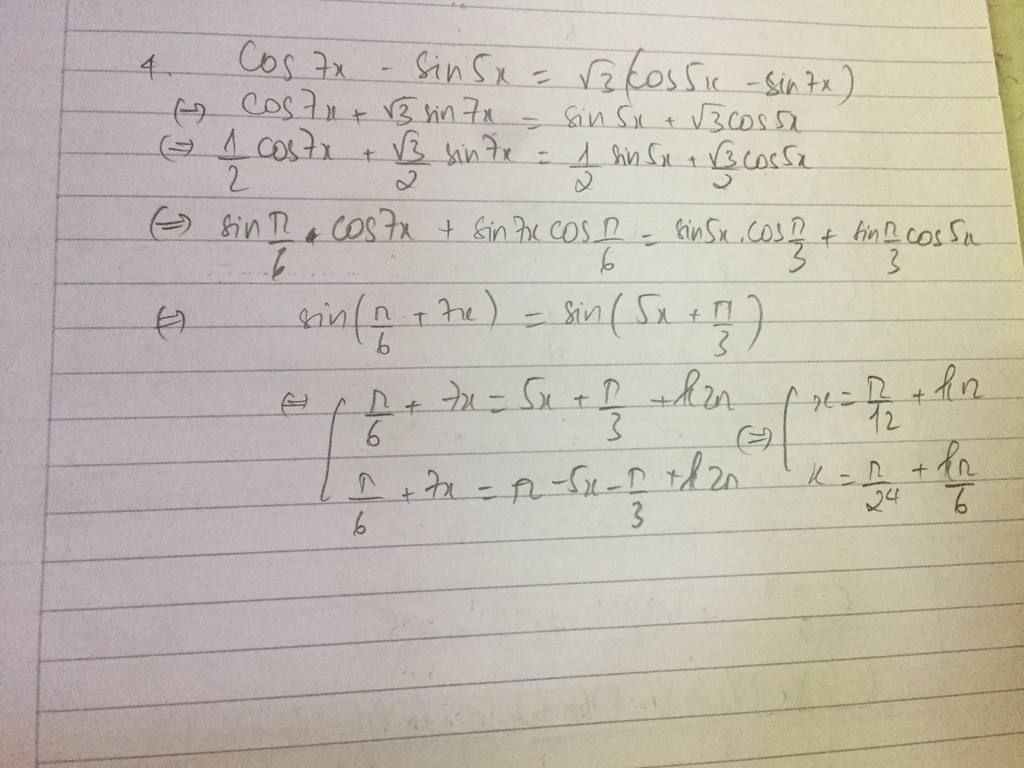 4. cos7x - sin5x = √3(cos5x - sin7x)
⇔ cos7x + √3 sin7x = sin5x + √3cos5x
⇔ 1/2 cos7x + √3/2 sin7x = 1/2 sin5x + √3/2 cos5x
⇔ sin π/6 . cos7x + sin7x cos π/6 = sin5x . cos π/3 + sin π/3 cos5x
⇔ sin(π/6 + 7x) = sin(5x + π/3)
⇔ [ π/6 + 7x = 5x + π/3 + k2π ⇔ [ x = π/12 + kπ
π/6 + 7x = π - 5x - π/3 + k2π x = π/24 + kπ/6